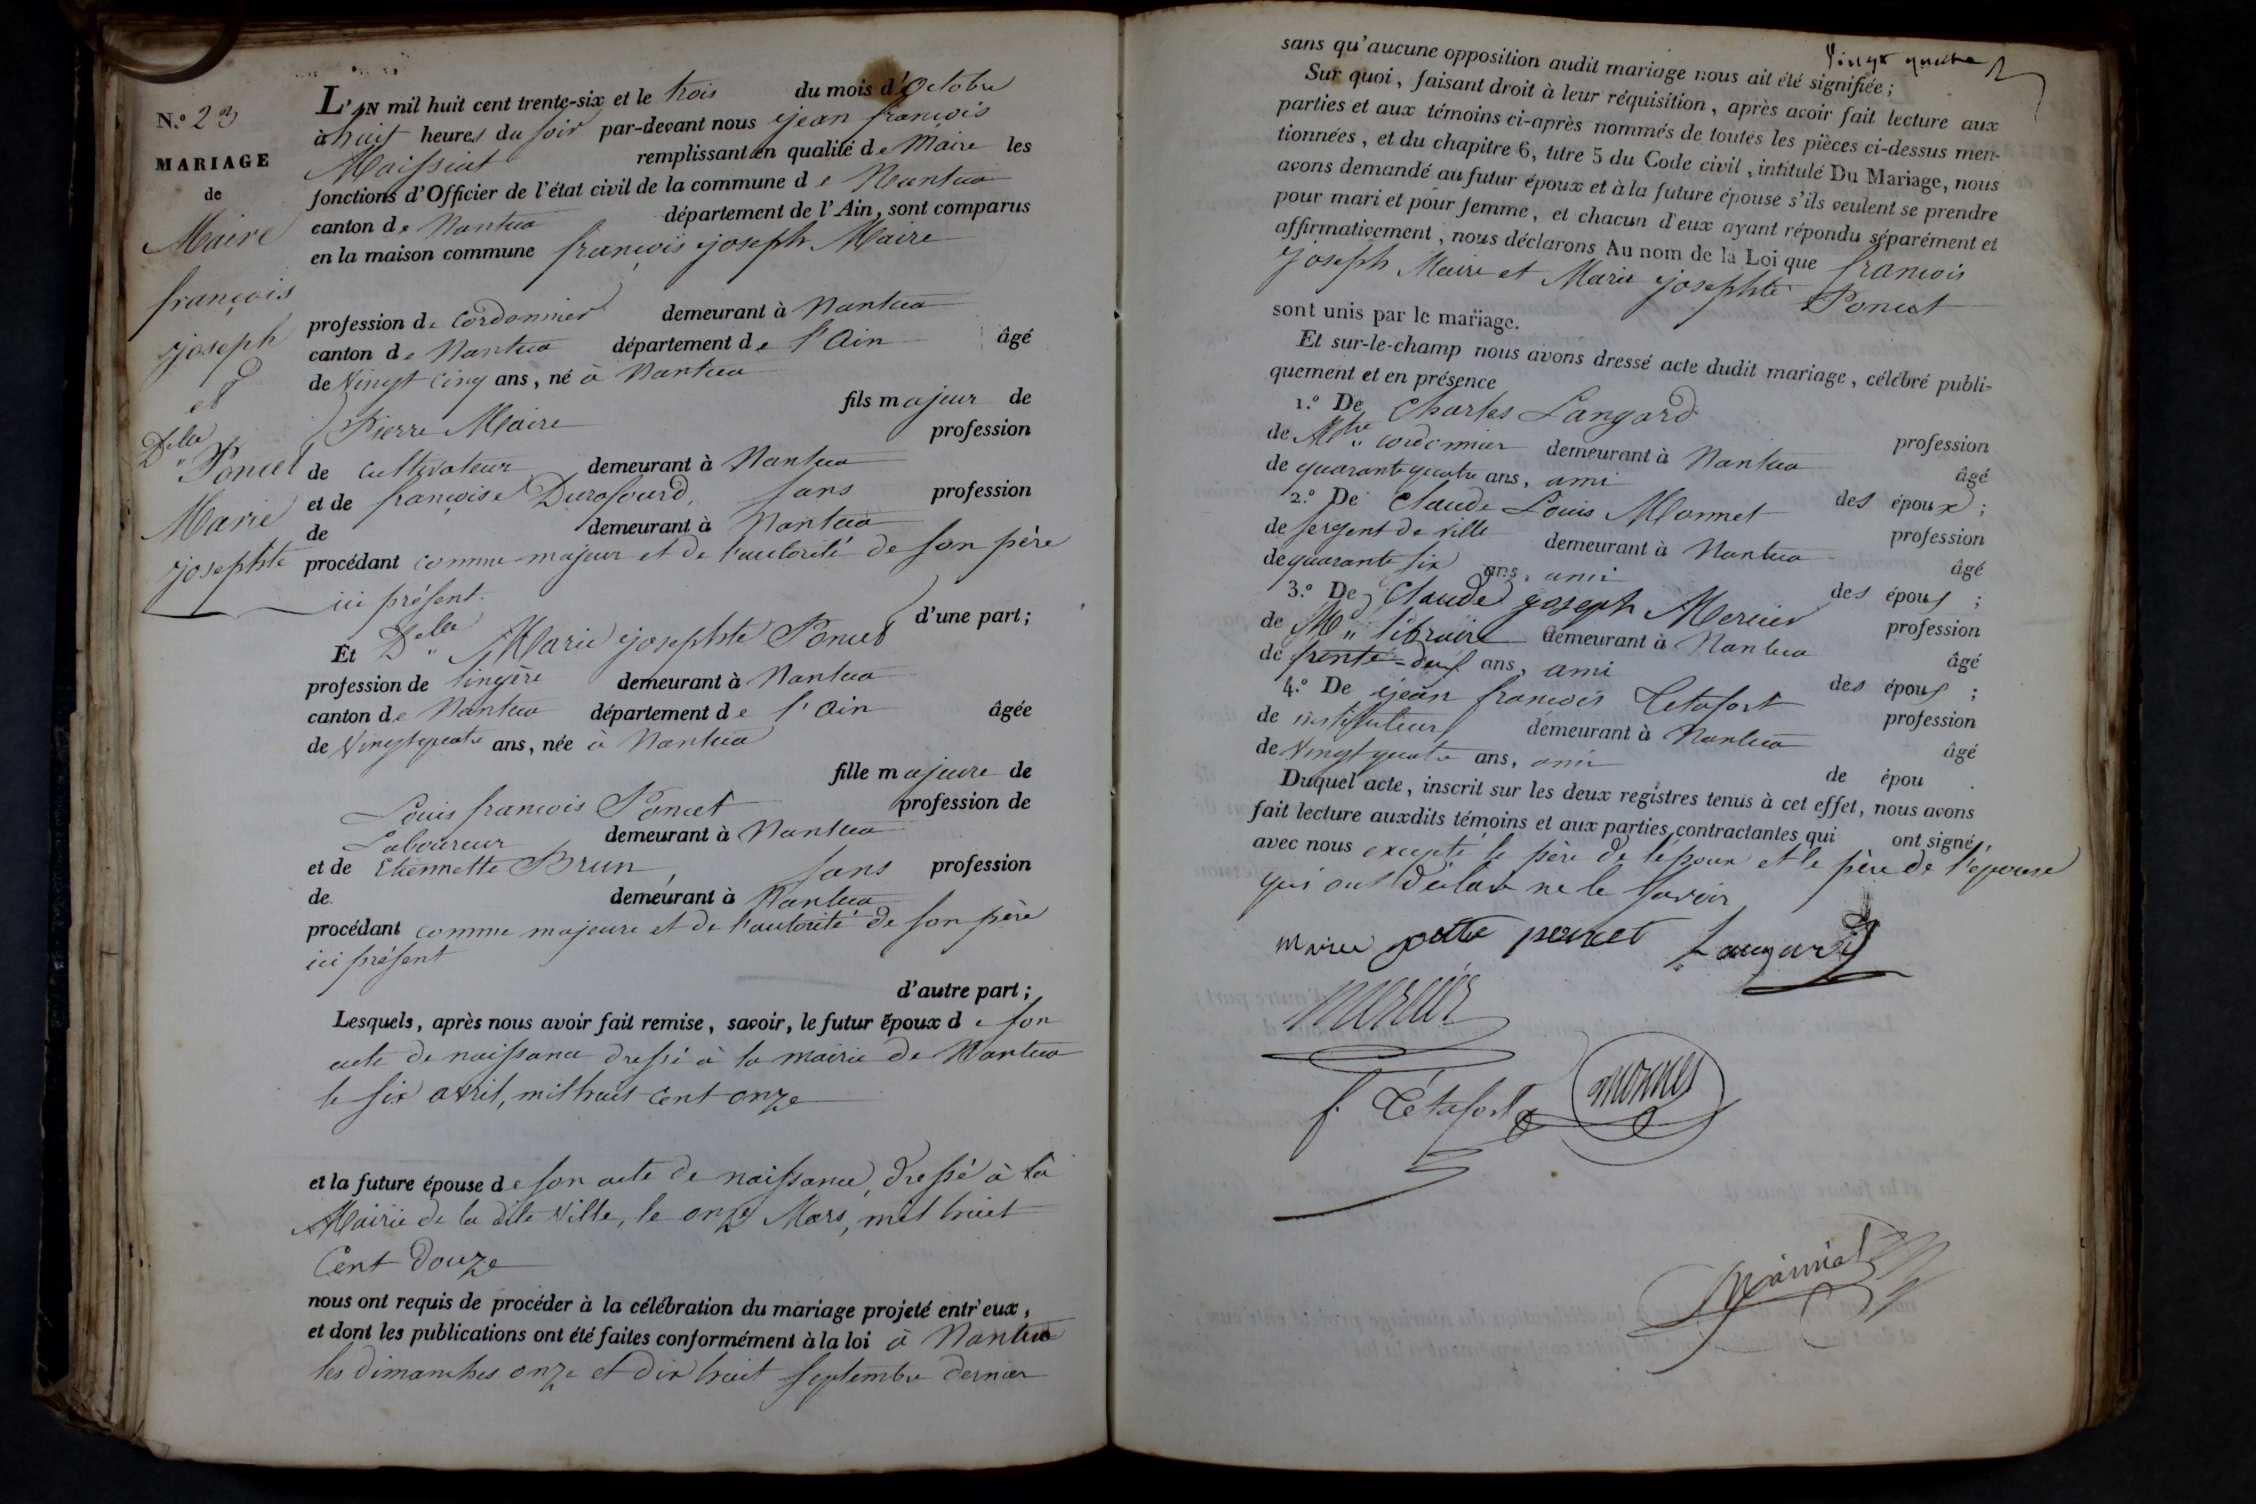 N.º 23
MARIAGE
de
Maire
françois
joseph
et
Dlle
Poncet
Marie
josephte
L'AN mil huit cent trente-six et le trois du mois d'Octobre
à huit heures du soir par-devant nous jean françois
Maissiat remplissant en qualité de Maire les
fonctions d'Officier de l'état civil de la commune de Nantua
canton de Nantua département de l'Ain, sont comparus
en la maison commune françois joseph Maire
profession de Cordonnier demeurant à Nantua
canton de Nantua département de l'Ain âgé
de Vingt Cinq ans, né à Nantua
fils majeur de
Pierre Maire profession
de Cultivateur demeurant à Nantua
et de françoise Durafourd, sans profession
de demeurant à Nantua
procédant comme majeur et de l'autorité de son père
ici présent.
d'une part;
Et Dlle Marie josephte Poncet
profession de lingère demeurant à Nantua
canton de Nantua département de l'Ain âgée
de Vingt quatre ans, née à Nantua
fille majeure de
Louis françois Poncet profession de
Laboureur demeurant à Nantua
et de Etiennette Brun, sans profession
de demeurant à Nantua
procédant comme majeure et de l'autorité de son père
ici présent
d'autre part;
Lesquels, après nous avoir fait remise, savoir, le futur époux de son
acte de naissance dressé à la mairie de Nantua
le six avril, mil huit cent onze
et la future épouse de son acte de naissance, dressé à la
Mairie de la dite Ville, le onze Mars, mil huit
Cent Douze
nous ont requis de procéder à la célébration du mariage projeté entr'eux,
et dont les publications ont été faites conformément à la loi à Nantua
les dimanches onze et dix huit septembre dernier
Vingt quatre
sans qu'aucune opposition audit mariage nous ait été signifiée;
Sur quoi, faisant droit à leur réquisition, après avoir fait lecture aux
parties et aux témoins ci-après nommés de toutes les pièces ci-dessus men-
tionnées, et du chapitre 6, titre 5 du Code civil, intitulé Du Mariage, nous
avons demandé au futur époux et à la future épouse s'ils veulent se prendre
pour mari et pour femme, et chacun d'eux ayant répondu séparément et
affirmativement, nous déclarons Au nom de la Loi que françois
joseph Maire et Marie josephte Poncet
sont unis par le mariage.
Et sur-le-champ nous avons dressé acte dudit mariage, célébré publi-
quement et en présence
1.º De Charles Langard profession
de Mtre cordonnier demeurant à Nantua âgé
de quarante quatre ans, ami des époux;
2.º De Claude Louis Monnet profession
de sergent de ville demeurant à Nantua âgé
de quarante six ans, ami des époux;
3.º De Claude joseph Mercier profession
de Md libraire demeurant à Nantua âgé
de trente-deux ans, ami des époux;
4.º De jean françois Tétafort profession
de instituteur demeurant à Nantua âgé
de Vingt quatre ans, ami de épou
Duquel acte, inscrit sur les deux registres tenus à cet effet, nous avons
fait lecture auxdits témoins et aux parties contractantes qui ont signé,
avec nous excepté le père de l'époux et le père de l'épouse
qui ont déclaré ne le savoir
poncet Langard
mercier
f. Tétafort monnet
Maissiat